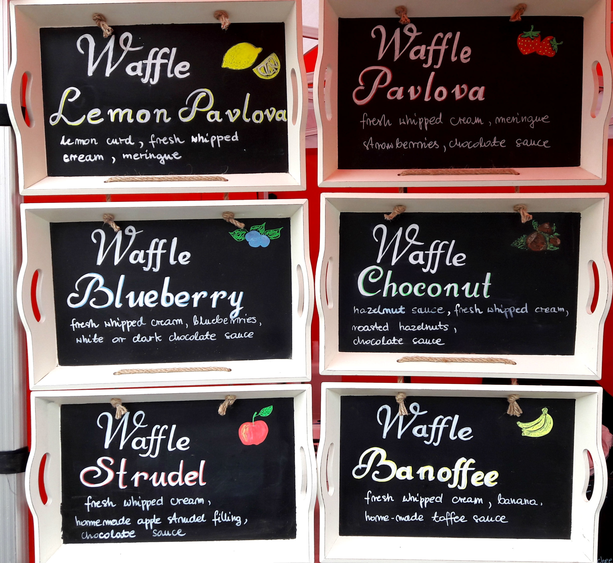 Waffle
Lemon Pavlova
lemon curd, fresh whipped
cream, meringue
Waffle
Pavlova
fresh whipped cream, meringue
strawberries, chocolate sauce
Waffle
Blueberry
fresh whipped cream, blueberries,
white or dark chocolate sauce
Waffle
Choconut
hazelnut sauce, fresh whipped cream,
roasted hazelnuts,
chocolate sauce
Waffle
Strudel
fresh whipped cream,
homemade apple strudel filling,
chocolate sauce
Waffle
Banoffee
fresh whipped cream, banana,
home-made toffee sauce